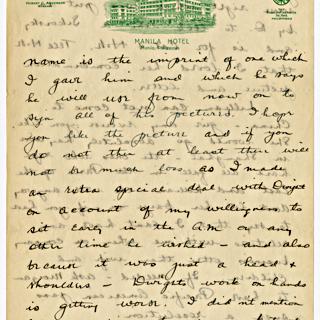 MANILA HOTEL
name is the imprint of one which
I gave him and which he says
he will use from now on to
sign all of his pictures. I hope
you like the picture and if you
do not then at least there will
not be much loss as I made
an extra special deal with Dwight
on account of my willingness to
set early in the a.m. or any
other time he asked – and also
because it was just a head &
shoulders – Dwight's work on hands
is getting worse. I didn't mention